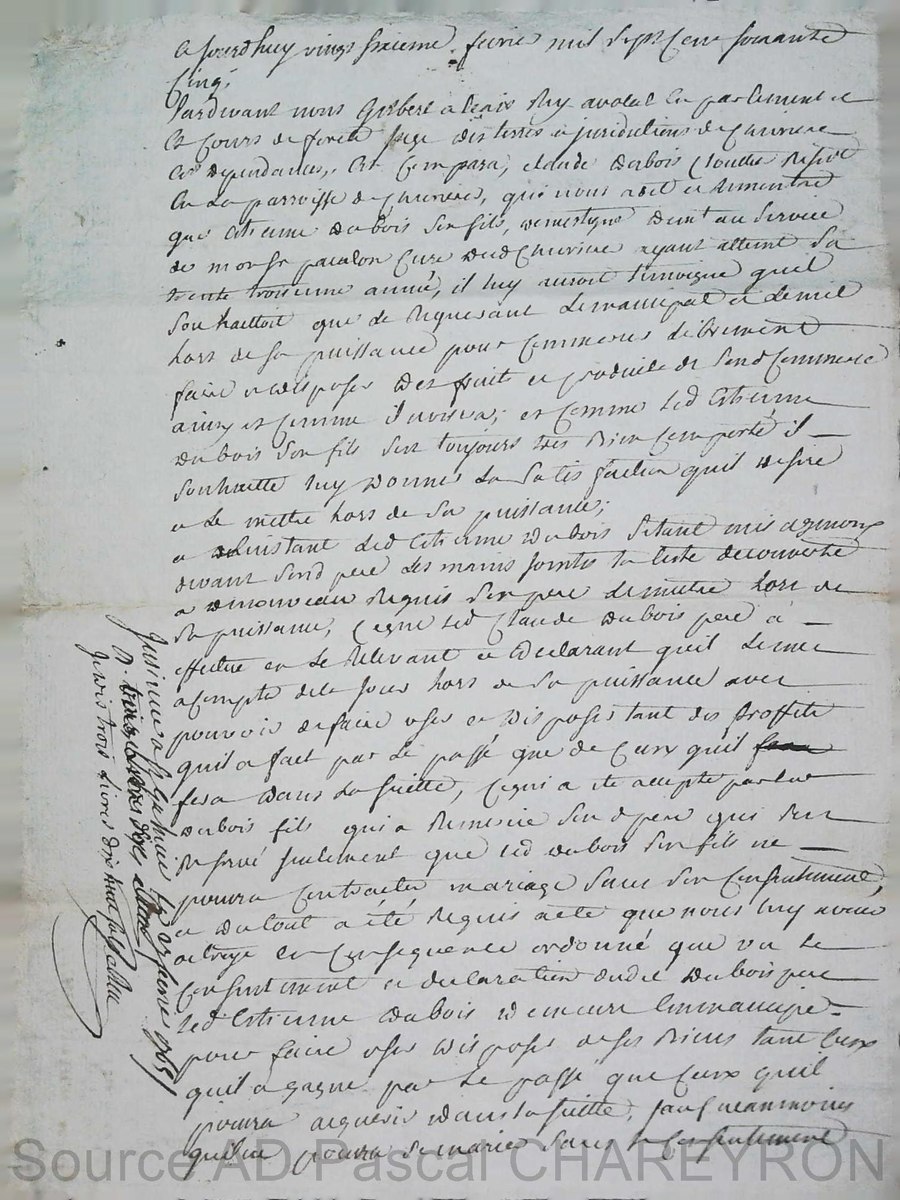 Ce Jourdhuy vingt sixieme fevrier mil sept cent soixante
cinq,
Pardevant nous Gilbert avocat en parlement et
Es cours de forest Juge des terres et juridictions de Cheviere
et dependances, Est comparu, claude Dubois
En la parroisse de cheviere, qui nous a dit et remontré
que Etienne dubois son fils, domestique au service
de monsr curé dud cheviere ayant atteint sa
trente troisieme année, il luy auroit temoigné quil
Souhaittoit que de lemancipat et le mit
hors de sa puissance pour commercer librement
faire et disposer des fruits et produits de sond Commerce
ainsy et comme il avisera; et comme led Etienne
dubois son fils sest toujours tres bien comporté il
souhaitte luy donner la satisfaction quil desire
et le mettre hors de sa puissance;
a Linstant led Etienne dubois setant mis a genoux
devant sond pere les mains jointes la teste decouverte
a de nouveau requis son pere de mettre hors de
sa puissance, ce que led Claude dubois pere a
effectué en le relevant et declarant quil le met
a compter de ce jour hors de sa puissance avec
pouvoir de faire user et disposer tant des proffits
quil a fait par le passé que de ceux quil
fera dans la suitte, ce qui a été accepté par led
dubois fils qui a remercié sond pere qui sest
reservé seulement que led dubois son fils ne
pourra contracter mariage sans son consentement,
et du tout a été requis acte que nous luy avons
octroyé en consequence ordonné que vu le
consentement et declaration dudit dubois pere
led Etienne dubois demeure emmancipé
pour faire user disposer de ses biens tant ceux
quil a gagné par le passé que ceux quil
pourra acquerir dans la suitte, sauf neanmoins
quil ne pourra se marier sans le consentement
Insinué a fevrier 1765
Reçu trois livres dix huit sols
Source AD Pascal CHAREYRON